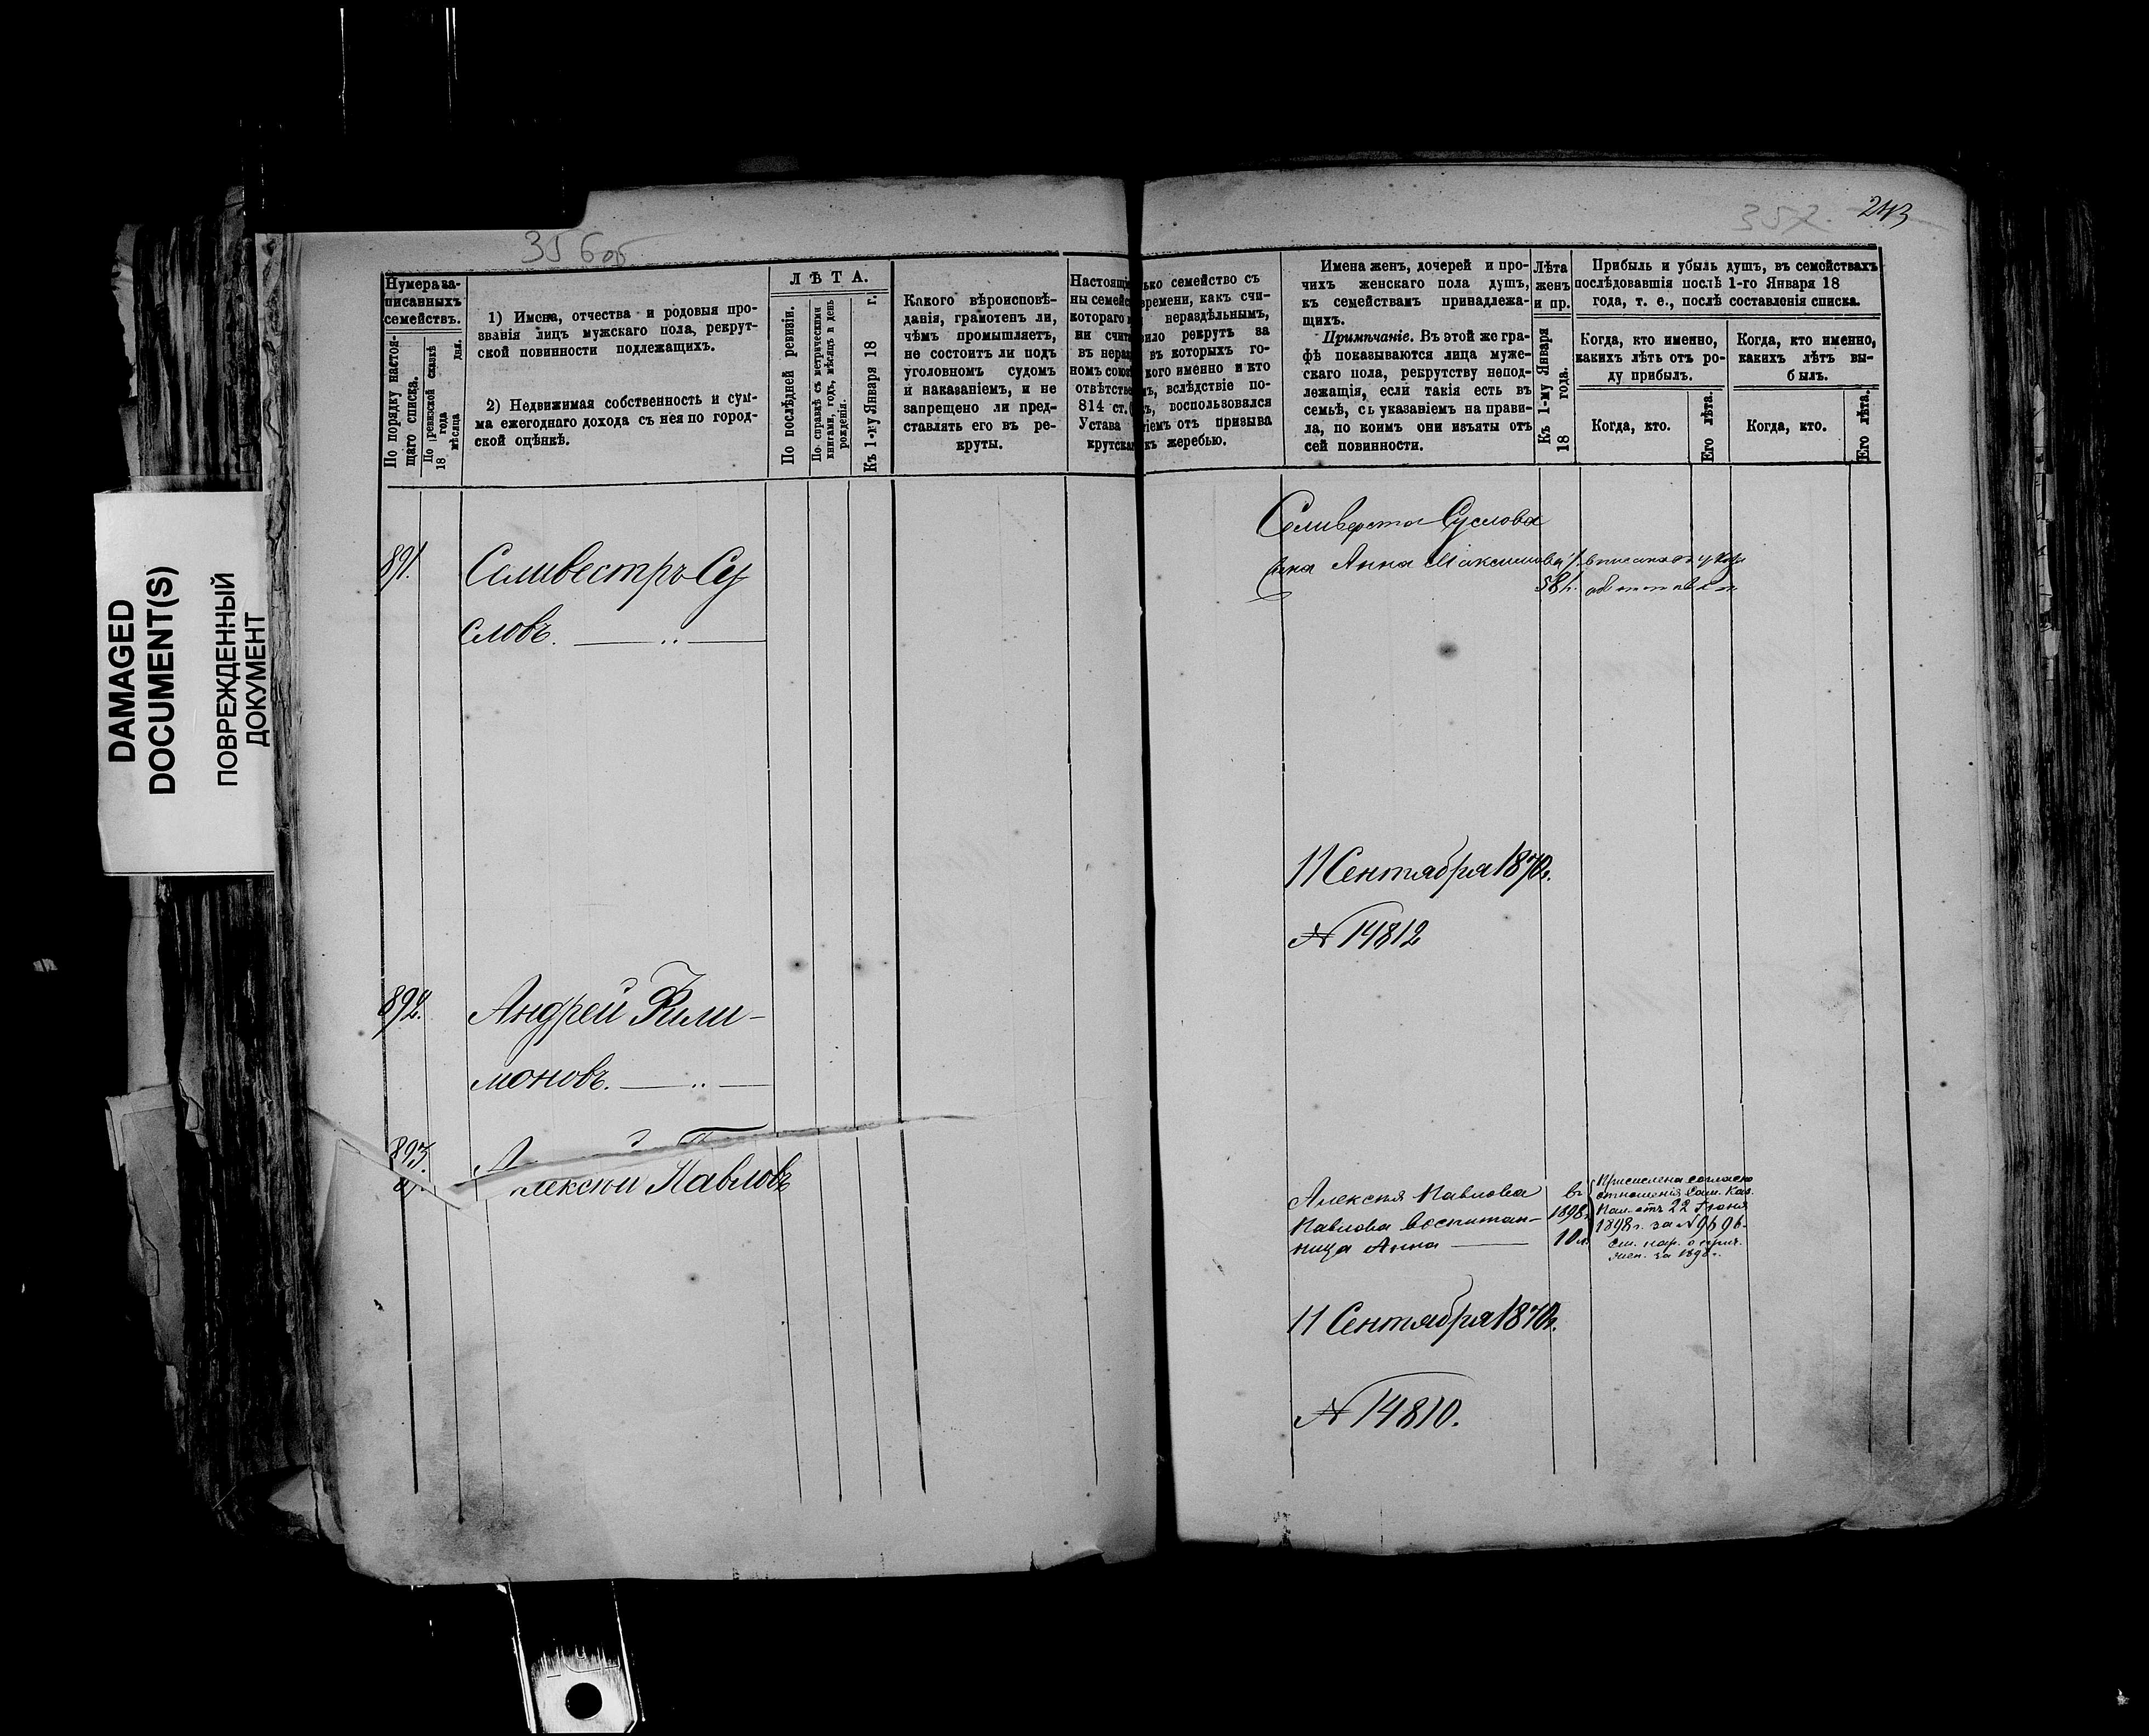 DAMAGED
DOCUMENT(S)
ПОВРЕЖДЕННЫЙ
ДОКУМЕНТ
356об
357.
243
Нумера за-
писанныхъ
семействъ.
По порядку настоя-
щаго списка.
По ревизской сказкѣ
18 года
мѣсяца дня.
1) Имена, отчества и родовыя про-
званія лицъ мужскаго пола, рекрут-
ской повинности подлежащихъ.
2) Недвижимая собственность и сум-
ма ежегоднаго дохода съ нея по город-
ской оцѣнкѣ.
ЛѢТА.
По послѣдней ревизіи.
По справкѣ съ метрическими
книгами, годъ, мѣсяцъ и день
рожденія.
Къ 1-му Января 18 г.
Какого вѣроисповѣ-
данія, грамотенъ ли,
чѣмъ промышляетъ,
не состоитъ ли подъ
уголовномъ судомъ
и наказаніемъ, и не
запрещено ли пред-
ставлять его въ ре-
круты.
Настоящі
ны семейс
котораго
ни счит
въ нераз
номъ союз
отвѣтстве
814 ст.
Устава
крутска
ько семейство съ
времени, какъ счи-
нераздѣльнымъ,
вило рекрутъ за
въ которыхъ го-
кого именно и кто
ъ, вслѣдствіе по-
ъ, воспользовался
іемъ отъ призыва
къ жеребью.
Имена женъ, дочерей и про-
чихъ женскаго пола душъ,
къ семействамъ принадлежа-
щихъ.
Примѣчаніе. Въ этой же гра-
фѣ показываются лица муже-
скаго пола, рекрутству непод-
лежащія, если такія есть въ
семьѣ, съ указаніемъ на прави-
ла, по коимъ они изъяты отъ
сей повинности.
Лѣта
женъ
и пр.
Къ 1-му Января
18 года.
Прибыль и убыль душъ, въ семействахъ
послѣдовавшія послѣ 1-го Января 18
года, т. е., послѣ составленія списка.
Когда, кто именно,
какихъ лѣтъ отъ ро-
ду прибылъ.
Когда, кто именно,
какихъ лѣтъ вы-
былъ.
Когда, кто.
Его лѣта.
Когда, кто.
Его лѣта.
891. Селивестръ Су
словъ.
Селиверста Суслова
жена Анна Максимова
58 л.
11 Сентября 1870 г.
№ 14812
892. Андрей Фили-
моновъ.
893. Алексѣй Павловъ
Алексѣя Павлова
Павлова воспитан-
ница Анна
въ
1898 г.
10 л.
Причислена согласно
отношенія Сам. Каз.
Пал. отъ 22 Іюня
1898 г. за № 9696
см. нар. о прич.
мѣщ. за 1898 г.
11 Сентября 1870 г.
№ 14810.